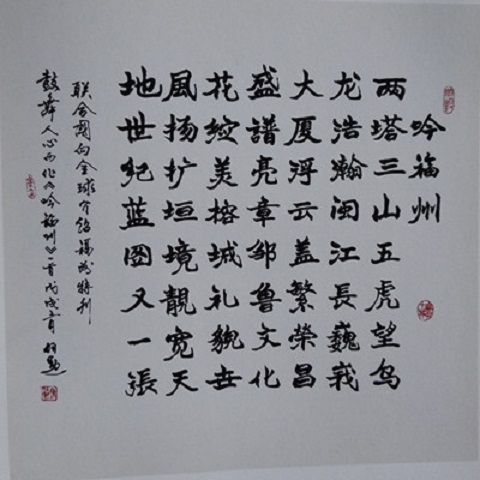 吟福州
两塔三山五虎望鸟
龙浩瀚闽江長巍峩
大厦浮云盖繁榮昌
盛譜亮章邹鲁文化
花綻美榕城礼貌世
風扬扩垣境靚宽天
地世纪蓝图又一張
联合国向全球 特刊
鼓舞人心而作吟福州一首戊戌